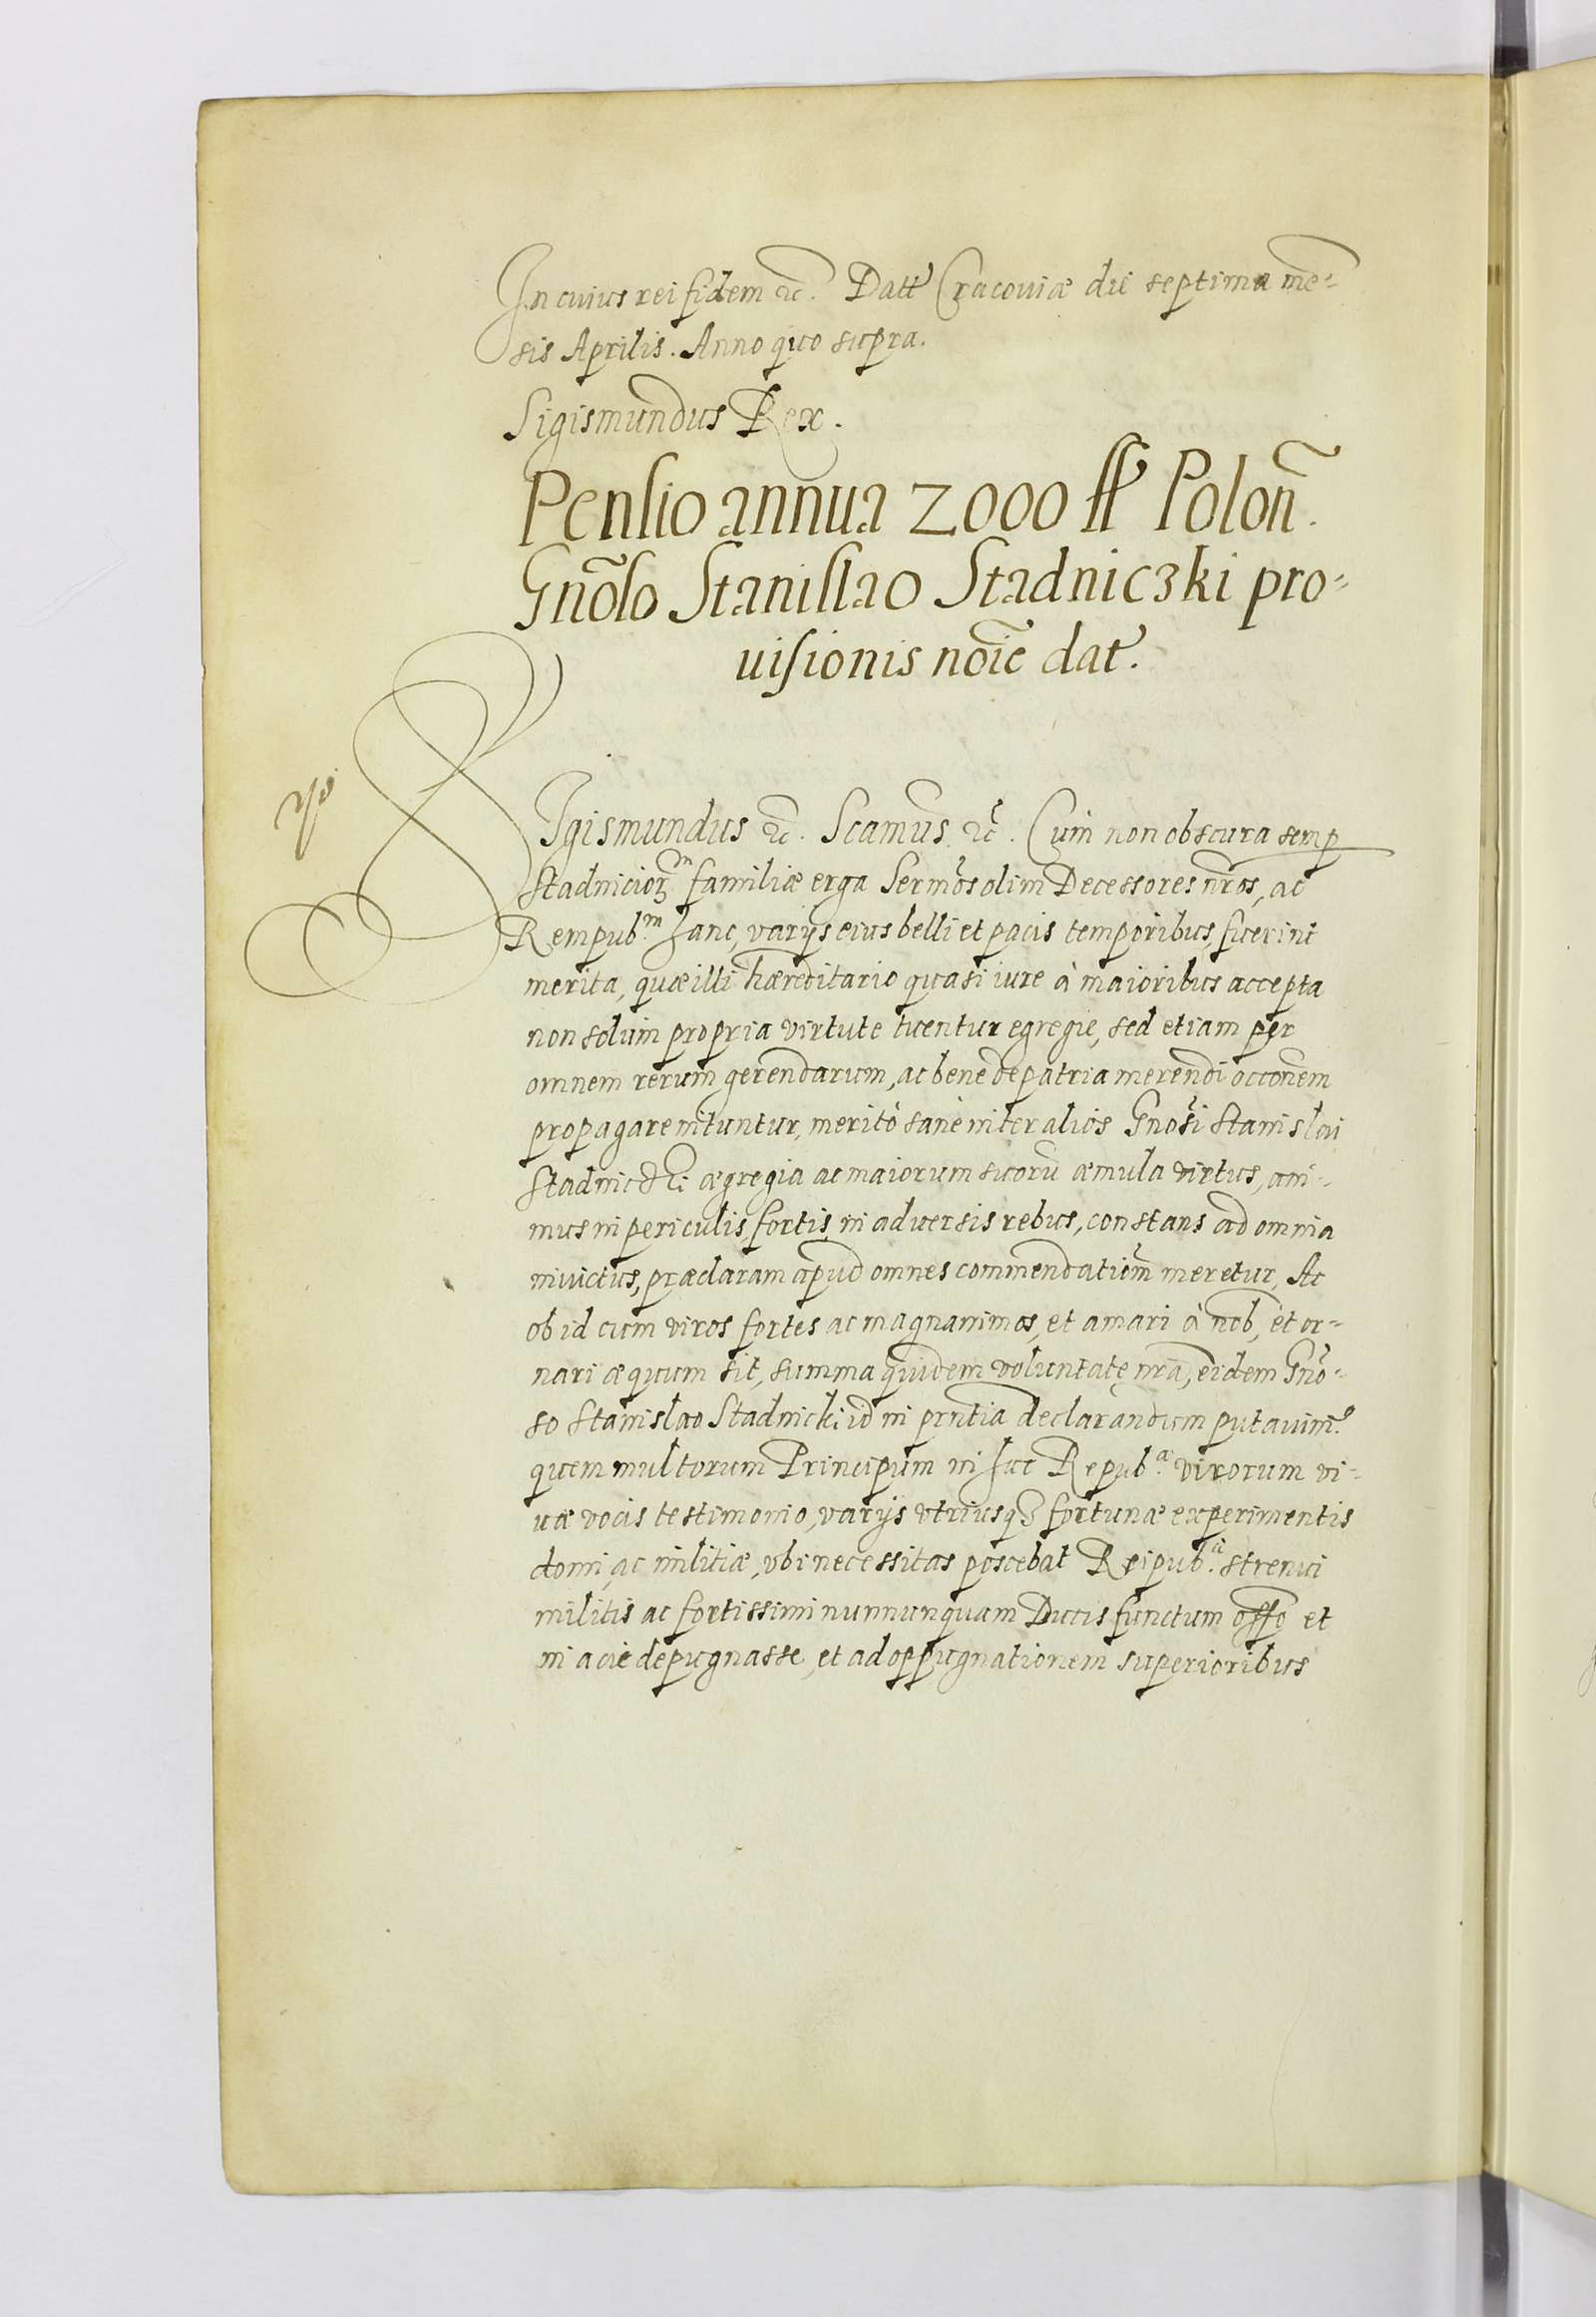 In cuius rei fidem &c. Datt Cracoviæ die septima mē=
sis Aprilis. Anno quo supra.
Sigismundus Rex.
Pensio annua 2000 ff Poloñ.
Gnõso Stanislao Stadniczki pro=
uisionis nõie dat.
SIgismundus &c. Scamus &c. Cum non obscura semp
Stadnicior familiæ erga Sermõs olim Decessores nros, ac
Rempub.m hanc, varijs eius belli et pacis temporibus, fuerint
merita, quæ illi hæreditario quasi iure à maioribus accepta
non solùm propria virtute tuentur egregie, sed etiam per
omnem rerum gerendarum, ac bene de patria merendi occõnem
propagare nituntur, meritò sanè inter alios Gnosi Stanislai
Stadnicki ægregia ac maiorum suorũ æmula virtus, ani=
mus in periculis fortis, in aduersis rebus, constans ad omnia
inuictus, præclaram apud omnes commendatiõm meretur, Ac
ob id cum viros fortes ac magnanimos, et amari à nob, et or=
nari æquum sit, summa quidem voluntate nrã, eidem Gnõ=
so Stanislao Stadnicki id in prntia declarandum putauim9
quem multorum Principum in hac Repub.a virorum vi=
uæ vocis testimonio, varijs vtriusq3 fortunæ experimentis
domi, ac militiæ, vbi necessitas poscebat Reipub. strenui
militis ac fortissimi nunnunquam Ducis functum offo et
in acie depugnasse, et ad oppugnationem superioribus